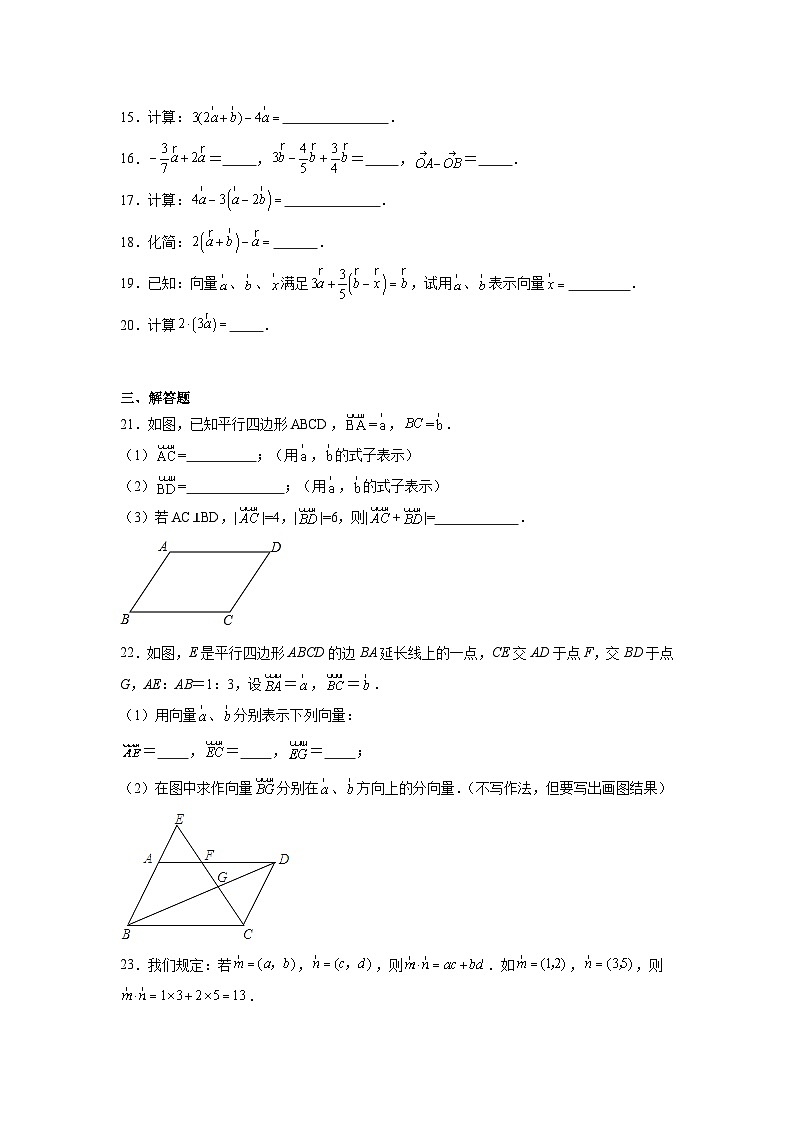 15．计算：3(2a⃗+b⃗)−4a⃗=______________．
16．−3/7a⃗+2a⃗=_____，3b⃗−4/5b⃗+3/4b⃗=_____，OA⃗−OB⃗=_____．
17．计算：4a⃗−3(a⃗−2b⃗)=_____________．
18．化简：2(a⃗+b⃗)−a⃗=______．
19．已知：向量a⃗、b⃗、x⃗满足3a⃗+3/5(b⃗−x⃗)=b⃗，试用a⃗、b⃗表示向量x⃗=________．
20．计算2·(3a⃗)=_____．
三、解答题
21．如图，已知平行四边形ABCD，BA⃗=a⃗，BC=b⃗．
（1）AC⃗=__________；（用a⃗，b⃗的式子表示）
（2）BD⃗=______________；（用a⃗，b⃗的式子表示）
（3）若AC⊥BD，|AC⃗|=4，|BD⃗|=6，则|AC⃗+BD⃗|=____________．
A D
B C
22．如图，E是平行四边形ABCD的边BA延长线上的一点，CE交AD于点F，交BD于点
G，AE：AB＝1：3，设BA⃗＝a⃗，BC⃗＝b⃗．
（1）用向量a⃗、b⃗分别表示下列向量：
AE⃗＝_____，EC⃗＝_____，EG⃗＝_____；
（2）在图中求作向量BG⃗分别在a⃗、b⃗方向上的分向量.（不写作法，但要写出画图结果）
E
A F D
G
B C
23．我们规定：若m⃗=(a，b)，n⃗=(c，d)，则m⃗·n⃗=ac+bd．如m⃗=(1,2)，n⃗=(3,5)，则
m⃗·n⃗=1×3+2×5=13．